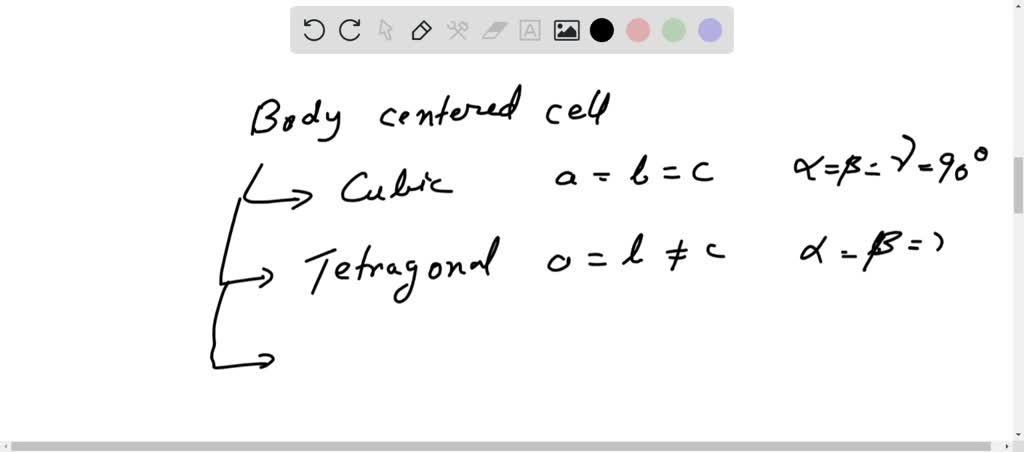 Body centered cell
Cubic a = b = c α = β = γ = 90°
Tetragonal a = b ≠ c α = β =